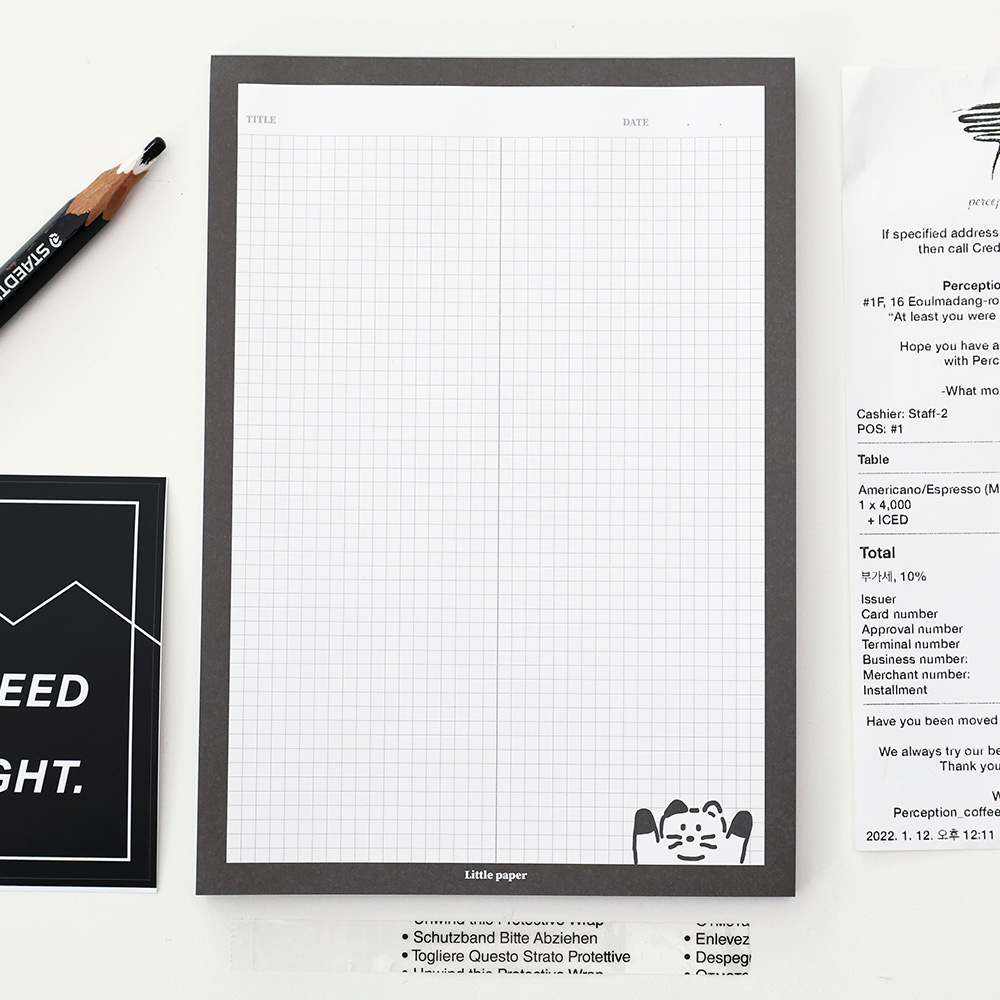 TITLE
DATE . .
Little paper
STAEDTL
EED
GHT.
If specified address
then call Cred
Perceptio
#1F, 16 Eoulmadang-ro
“At least you were
Hope you have a
with Perc
-What mo
Cashier: Staff-2
POS: #1
Table
Americano/Espresso (M
1 x 4,000
+ ICED
Total
부가세, 10%
Issuer
Card number
Approval number
Terminal number
Business number:
Merchant number:
Installment
Have you been moved
We always try our be
Thank you
W
Perception_coffee
2022. 1. 12. 오후 12:11
Unwind this Protective Wrap
• Schutzband Bitte Abziehen
• Togliere Questo Strato Protettive
• Unwind this Protective Wrap
• Enlevez
• Despeg